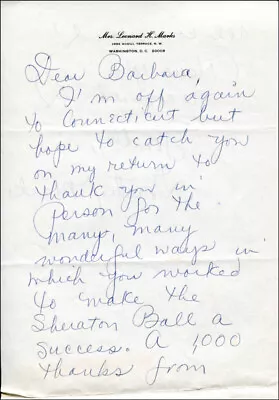 Mrs. Leonard H. Marks
WASHINGTON, D.C. 20008
Dear Barbara,
I'm off again
to Connecticut but
hope to catch you
on my return to
thank you in
Person for the
many, many
wonderful ways in
which you worked
to make the
Sheraton Ball a
success. A 1,000
thanks from